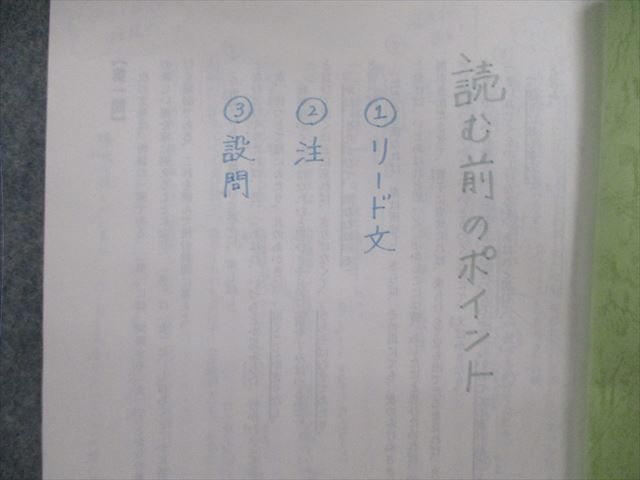 読む前のポイント
①リード文
②注
③設問